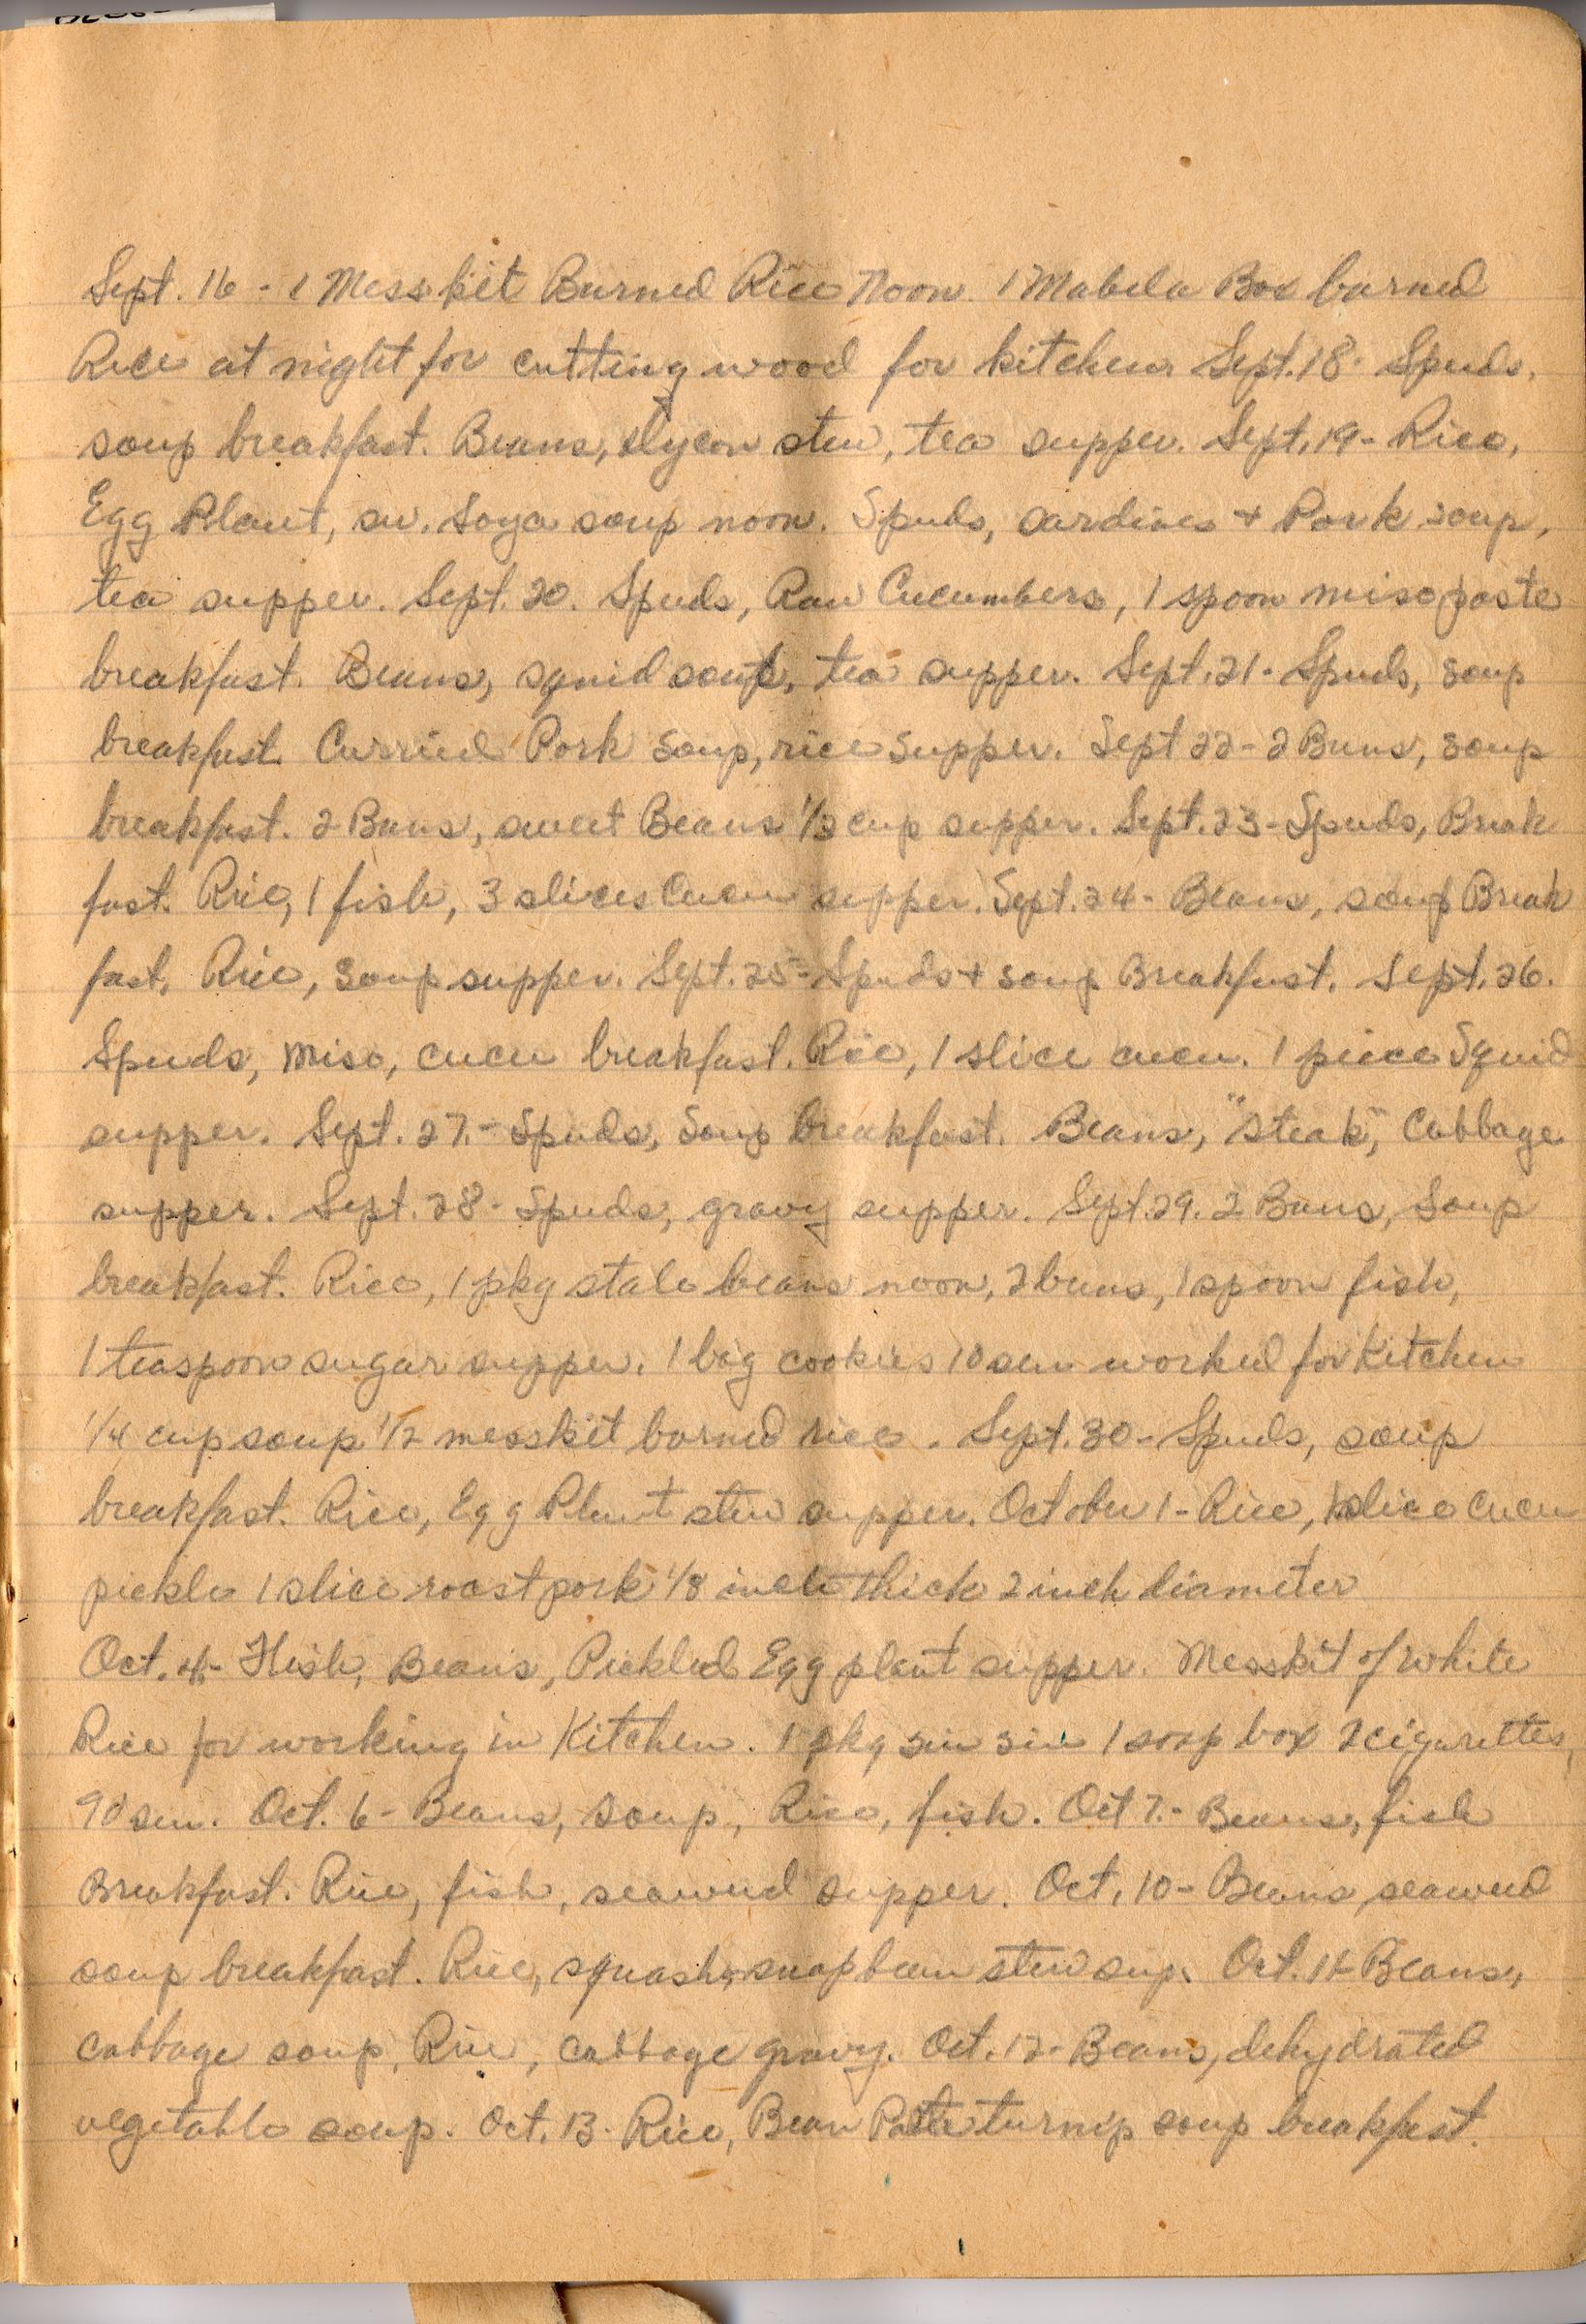 Sept. 16 - 1 Mess kit Burned Rice Noon. 1 Mabela Box burned
Rice at night for cutting wood for kitchen. Sept. 18 - Spuds,
soup breakfast. Beans, dycon stew, tea supper. Sept. 19 - Rice,
Egg Plant, sw. Soya soup noon. Spuds, sardines + Pork soup,
tea supper. Sept. 20. Spuds, Raw Cucumbers, 1 spoon miso paste
breakfast. Beans, squid soup, tea supper. Sept. 21 - Spuds, soup
breakfast. Curried Pork soup, rice supper. Sept 22 - 2 Buns, soup
breakfast. 2 Buns, sweet Beans 1/3 cup supper. Sept. 23 - Spuds, Break
fast. Rice, 1 fish, 3 slices Cucum supper. Sept. 24 - Beans, soup Break
fast. Rice, soup supper. Sept. 25 - Spuds + soup Breakfast. Sept. 26.
Spuds, miso, cucu breakfast. Rice, 1 slice cucu. 1 piece Squid
supper. Sept. 27. - Spuds, Soup breakfast. Beans, "steak", Cabbage
supper. Sept. 28 - Spuds, gravy supper. Sept. 29. 2 Buns, Soup
breakfast. Rice, 1 pkg stale beans noon, 2 buns, 1 spoon fish,
1 teaspoon sugar supper. 1 bag cookies 10 sen worked for Kitchen
1/4 cup soup 1/2 messkit burned rice. Sept. 30 - Spuds, soup
breakfast. Rice, Egg Plant stew supper. October 1 - Rice, 1 slice cucu
pickle 1 slice roast pork 1/8 inch thick 2 inch diameter
Oct. 4 - Fish, Beans, Pickled Egg plant supper. Messkit of white
Rice for working in Kitchen. 1 pkg sin sin 1 soap box 2 cigarettes,
90 sen. Oct. 6 - Beans, soup, Rice, fish. Oct 7. - Beans, fish
Breakfast. Rice, fish, seaweed supper. Oct. 10 - Beans, seaweed
soup breakfast. Rice, squash, snap bean stew sup. Oct. 11 - Beans,
cabbage soup, Rice, cabbage gravy. Oct. 12 - Beans, dehydrated
vegetable soup. Oct. 13 - Rice, Bean Paste turnip soup breakfast.